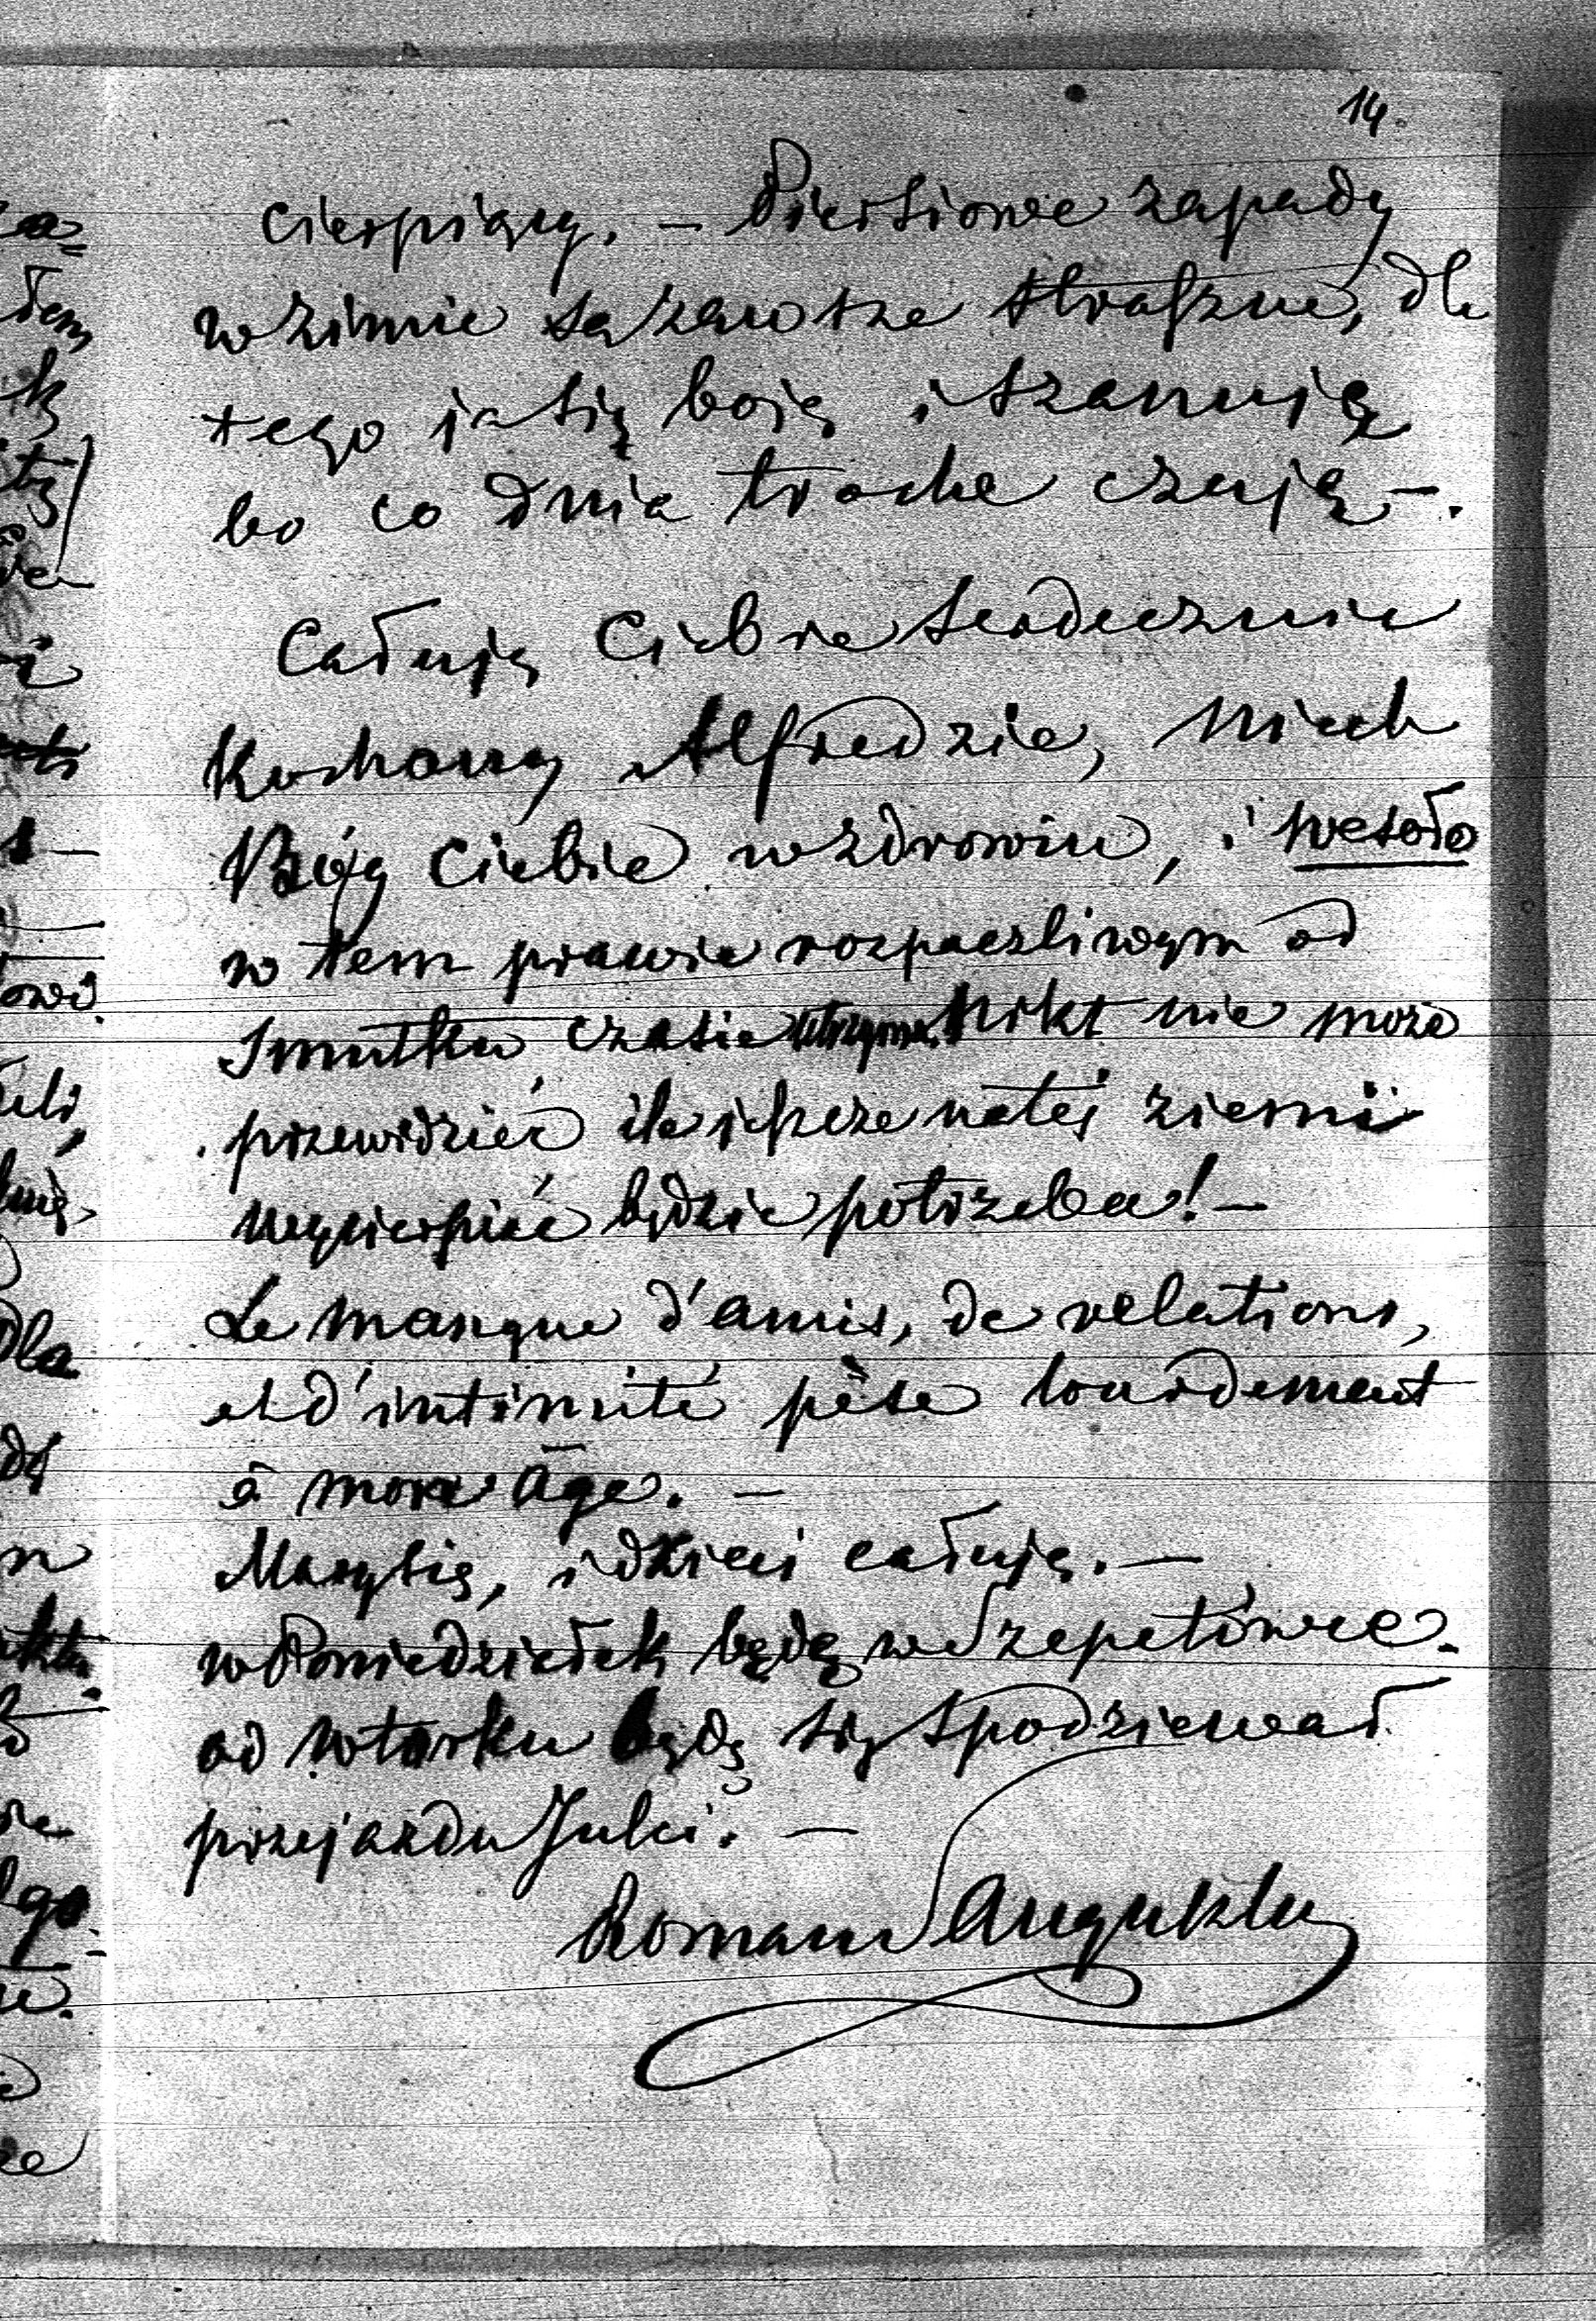 14.
cierpiący. – Piersiowe zapady
w zimie są zawsze straszne, dla
tego ja się boję i szanuję
bo co dnia trochę czuję –.
Całuję Ciebie serdecznie
Kochany Alfredzie, niech
Bóg Ciebie w zdrowiu, i wesoło
w tem prawie rozpaczliwym od
smutku czasie utrzyma. Nikt nie może
przewidzieć ile jeszcze na tej ziemi
wycierpieć będzie potrzeba! –
Le manque d'amis, de relations,
et d'intimité pèse lourdement
à mon âge. –
Marysię, i dzieci całuję. –
w Poniedziałek będę w Szepetówce.
od wtorku będę się spodziewał
przejazdu Julci. –
Roman Sanguszko